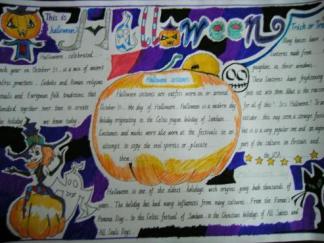 This is
halloween
Halloween
Trick or Tre
Halloween, celebrated
each year on October 31, is a mix of ancient
Celtic practices, Catholic and Roman religious
and European folk traditions that
blended together over time to create
the holiday we know today
Halloween costumes
Halloween costumes are outfits worn on or around
October 31, the day of Halloween. Halloween is a modern day
holiday originating in the Celtic pagan holiday of Samhain.
Costumes and masks were also worn at the festivals in an
attempt to copy the evil spirits or placate
them
have been
lanterns made from
pumpkins in their windows.
lanterns have frightening
Trick
this may seem a strange
is a very popular one and
part of the culture in Britain and
the USA.
Halloween is one of the oldest holidays with origins going back thousands of
years. The holiday has had many influences from many cultures. From the Roman's
Pomona Day, to the Celtic festival of Samhain, to the Christian holidays of All Saints and
All Souls Days.